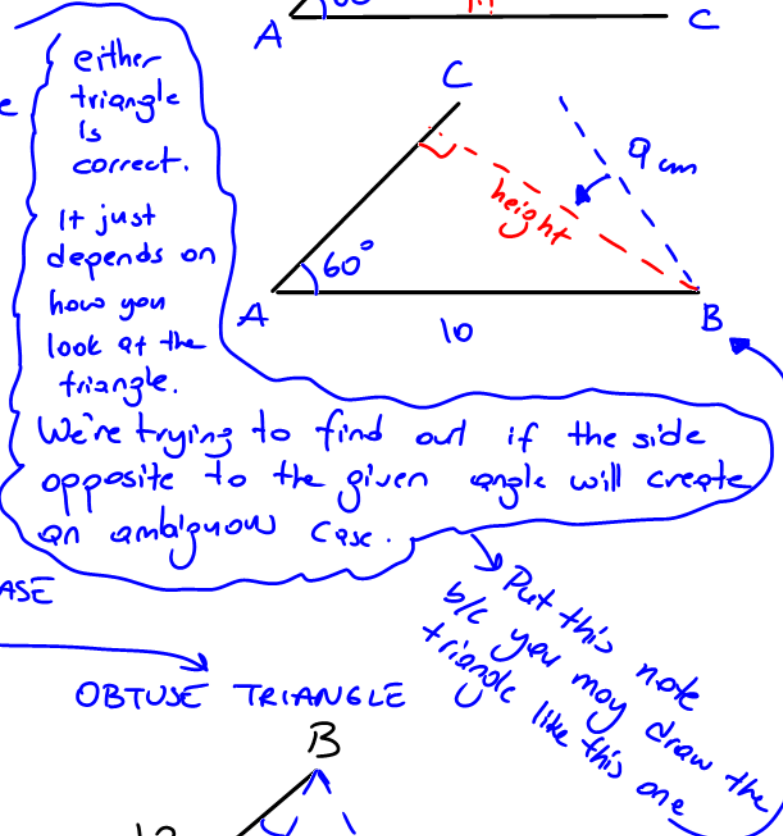 A
C
either
triangle
is
correct.
It just
depends on
how you
look at the
triangle.
We're trying to find out if the side
opposite to the given angle will create
an ambiguous case.
C
9 cm
height
60°
A
10
B
ASE
Put this note
b/c you may draw the
triangle like this one
OBTUSE TRIANGLE
B